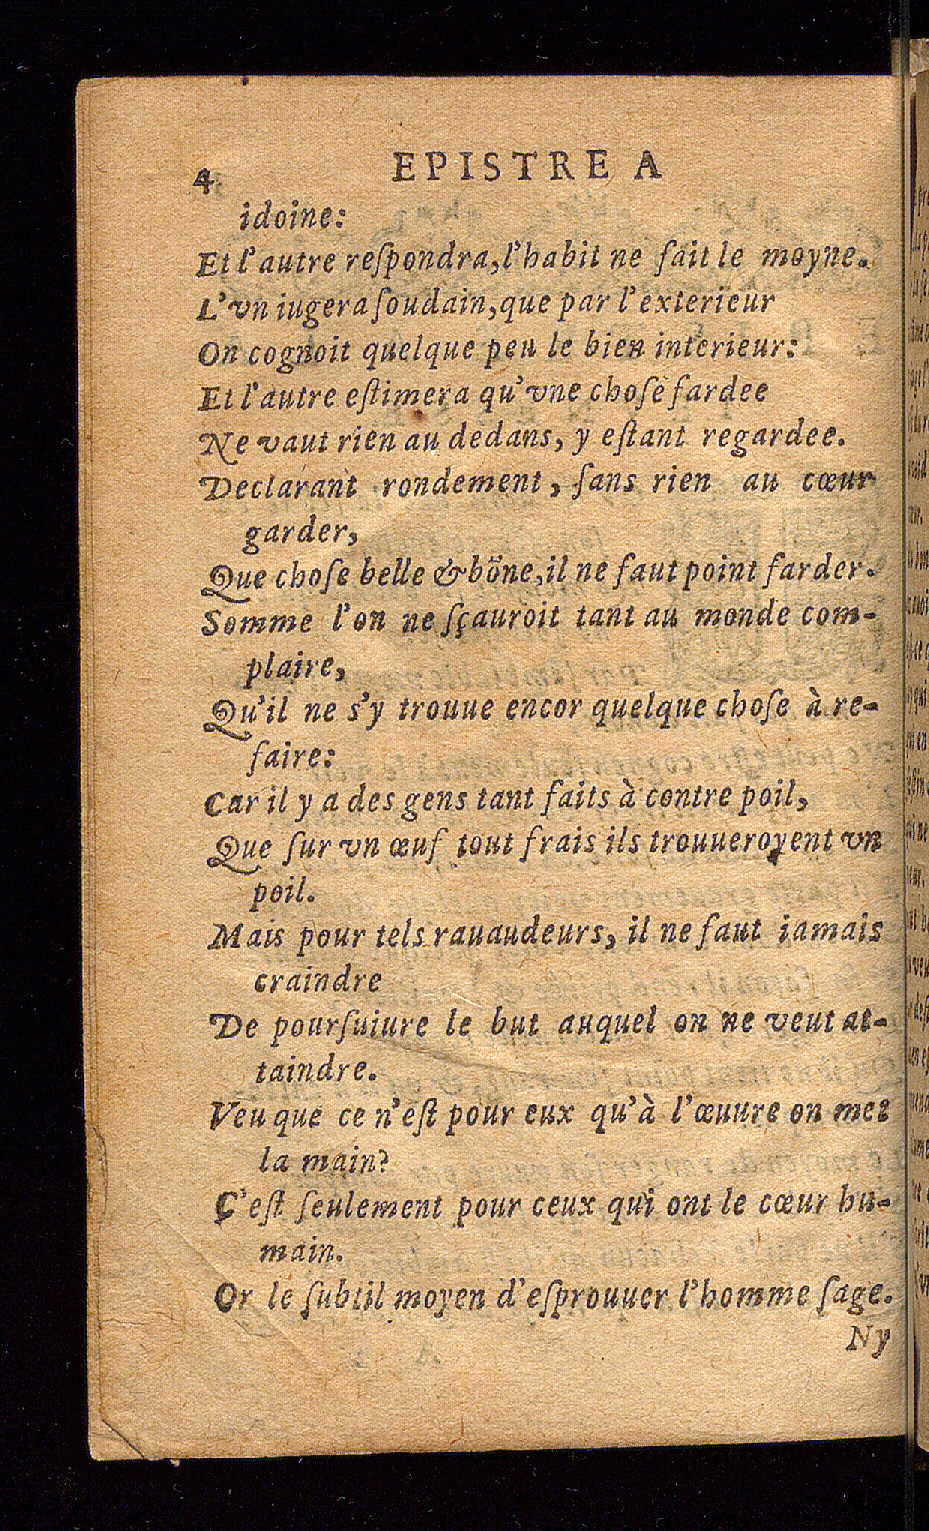 4 EPISTRE A
idoine:
Et l'autre reſpondra, l'habit ne fait le moyne.
L'vn iugera ſoudain, que par l'exterieur
On cognoit quelque peu le bien interieur:
Et l'autre eſtimera qu'vne choſe fardee
Ne vaut rien au dedans, y eſtant regardee.
Declarant rondement, ſans rien au cœur
garder,
Que choſe belle & bōne, il ne faut point farder.
Somme l'on ne ſçauroit tant au monde com-
plaire,
Qu'il ne s'y trouue encor quelque choſe à re-
faire:
Car il y a des gens tant faits à contre poil,
Que ſur vn œuf tout frais ils trouueroyent vn
poil.
Mais pour tels rauaudeurs, il ne faut iamais
craindre
De pourſuiure le but auquel on ne veut at-
taindre.
Veu que ce n'eſt pour eux qu'à l'œuure on met
la main?
C'eſt ſeulement pour ceux qui ont le cœur hu-
main.
Or le ſubtil moyen d'eſprouuer l'homme ſage.
Ny